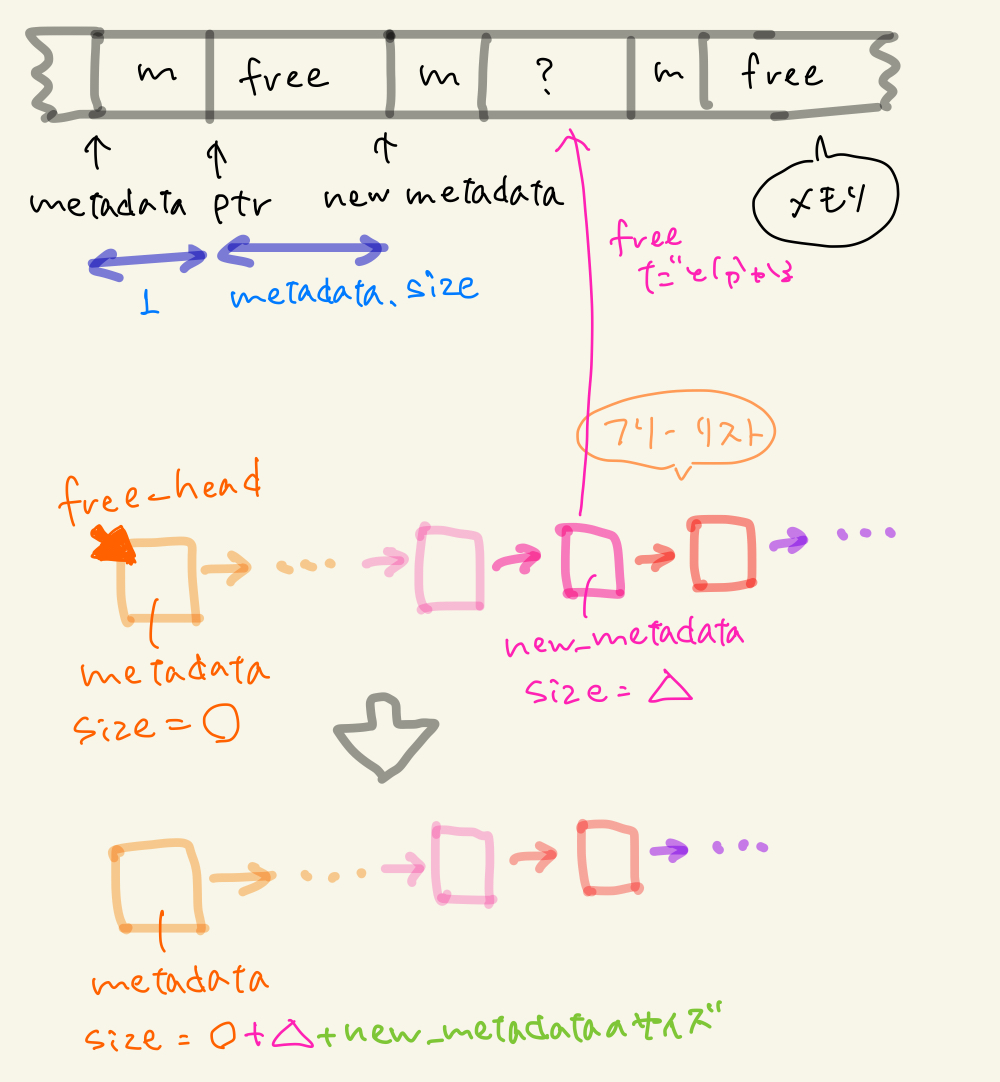 m free m ? m free
metadata ptr new metadata
メモリ
1 metadata.size
free
だとわかる
フリーリスト
free_head
metadata
size = ○
new_metadata
size = △
metadata
size = ○ + △ + new_metadataのサイズ